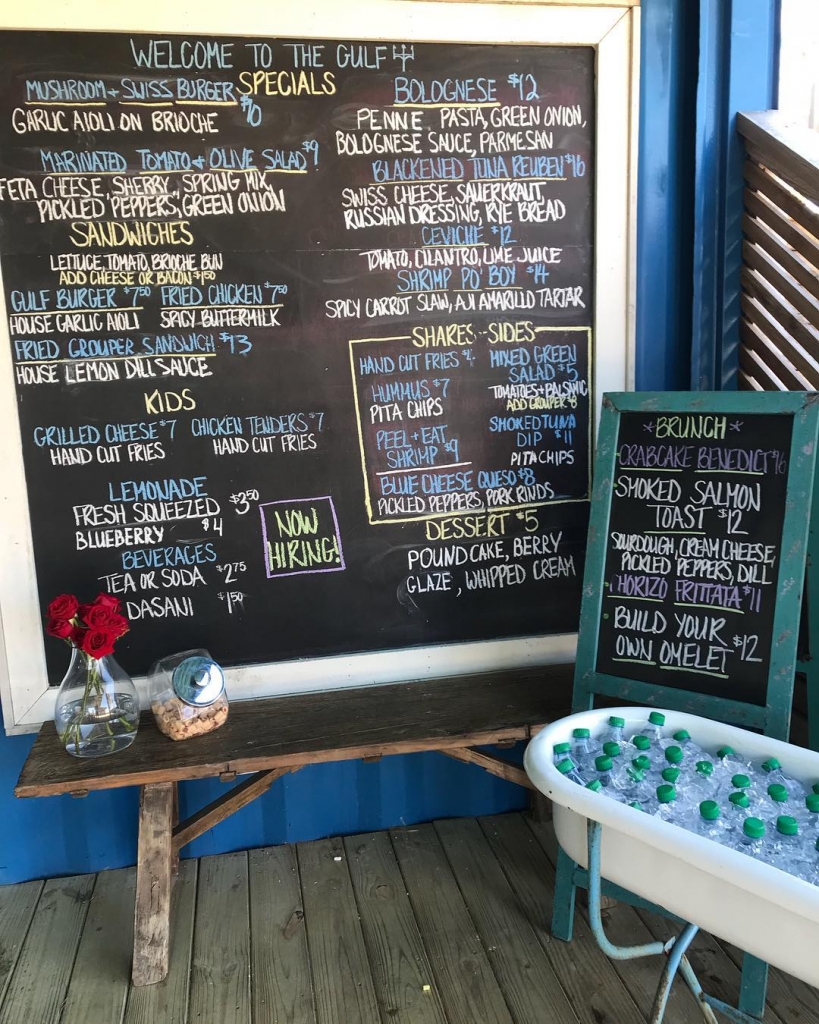 WELCOME TO THE GULF
SPECIALS
MUSHROOM + SWISS BURGER $10
GARLIC AIOLI ON BRIOCHE
MARINATED TOMATO + OLIVE SALAD $9
FETA CHEESE, SHERRY, SPRING MIX,
PICKLED PEPPERS, GREEN ONION
BOLOGNESE $12
PENNE PASTA, GREEN ONION,
BOLOGNESE SAUCE, PARMESAN
BLACKENED TUNA REUBEN $16
SWISS CHEESE, SAUERKRAUT,
RUSSIAN DRESSING, RYE BREAD
CEVICHE $12
TOMATO, CILANTRO, LIME JUICE
SHRIMP PO' BOY $14
SPICY CARROT SLAW, AJI AMARILLO TARTAR
SANDWICHES
LETTUCE, TOMATO, BRIOCHE BUN
ADD CHEESE OR BACON $1.50
GULF BURGER $7.50 FRIED CHICKEN $7.50
HOUSE GARLIC AIOLI SPICY BUTTERMILK
FRIED GROUPER SANDWICH $13
HOUSE LEMON DILL SAUCE
KIDS
GRILLED CHEESE $7 CHICKEN TENDERS $7
HAND CUT FRIES HAND CUT FRIES
LEMONADE
FRESH SQUEEZED $3.50
BLUEBERRY $4
BEVERAGES
TEA OR SODA $2.75
DASANI $1.50
NOW
HIRING!
SHARES - SIDES
HAND CUT FRIES $4
HUMMUS $7
PITA CHIPS
PEEL + EAT
SHRIMP $9
MIXED GREEN
SALAD $5
TOMATOES + BALSAMIC
ADD GROUPER $8
SMOKED TUNA
DIP $11
PITA CHIPS
BLUE CHEESE QUESO $8
PICKLED PEPPERS, PORK RINDS
DESSERT $5
POUNDCAKE, BERRY
GLAZE, WHIPPED CREAM
*BRUNCH*
CRABCAKE BENEDICT
SMOKED SALMON
TOAST $12
SOURDOUGH, CREAM CHEESE,
PICKLED PEPPERS, DILL
HORIZO FRITTATA $11
BUILD YOUR
OWN OMELET $12